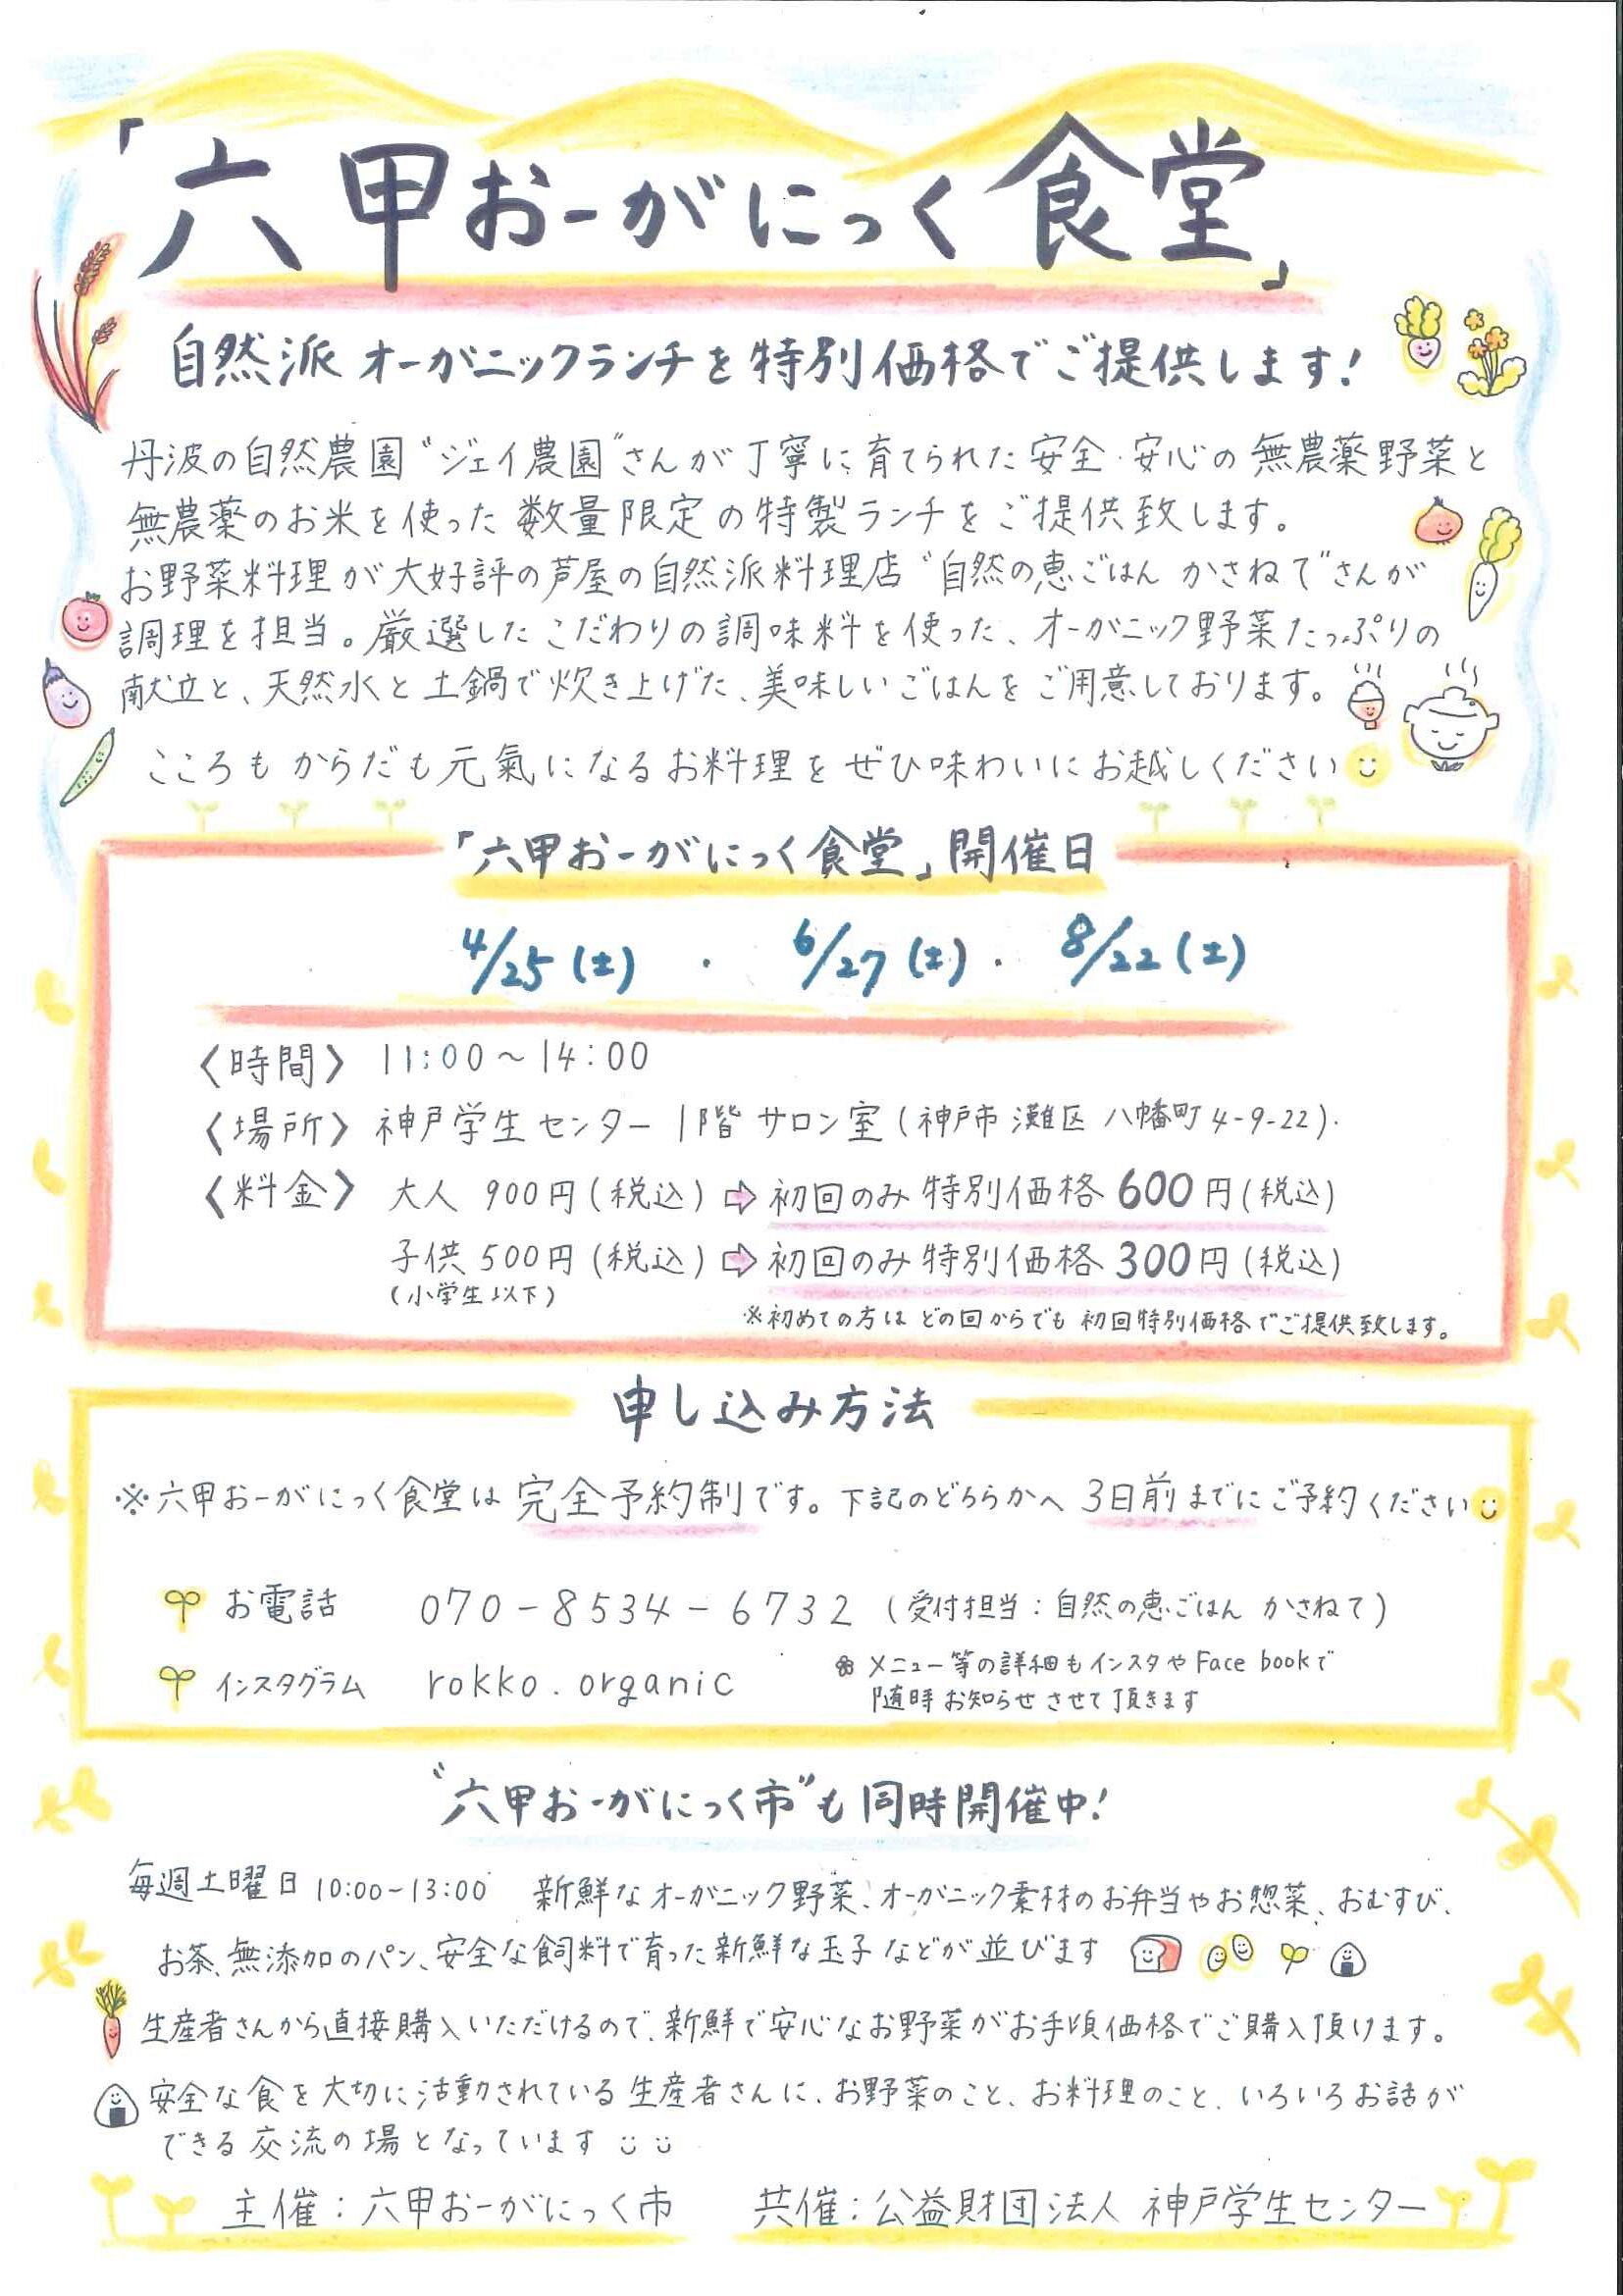 「六甲おーがにっく食堂」
自然派オーガニックランチを特別価格でご提供します!
丹波の自然農園“ジェイ農園”さんが丁寧に育てられた安全・安心の無農薬野菜と
無農薬のお米を使った数量限定の特製ランチをご提供致します。
お野菜料理が大好評の芦屋の自然派料理店“自然の恵ごはん かさねて”さんが
調理を担当。厳選したこだわりの調味料を使った、オーガニック野菜たっぷりの
献立と、天然水と土鍋で炊き上げた、美味しいごはんをご用意しております。
こころもからだも元氣になるお料理をぜひ味わいにお越しください
「六甲おーがにっく食堂」開催日
4/25(土)・6/27(土)・8/22(土)
〈時間〉 11:00~14:00
〈場所〉 神戸学生センター 1階 サロン室(神戸市灘区八幡町4-9-22).
〈料金〉 大人 900円(税込)⇨初回のみ特別価格600円(税込)
子供 500円(税込)⇨初回のみ特別価格300円(税込)
(小学生以下)
※初めての方はどの回からでも初回特別価格でご提供致します。
申し込み方法
※六甲おーがにっく食堂は完全予約制です。下記のどちらかへ3日前までにご予約ください
お電話 070-8534-6732 (受付担当:自然の恵ごはん かさねて)
インスタグラム rokko.organic
メニュー等の詳細もインスタやFace bookで
随時お知らせさせて頂きます
“六甲おーがにっく市”も同時開催中!
毎週土曜日 10:00-13:00 新鮮なオーガニック野菜、オーガニック素材のお弁当やお惣菜、おむすび、
お茶、無添加のパン、安全な飼料で育った新鮮な玉子などが並びます
生産者さんから直接購入いただけるので、新鮮で安心なお野菜がお手頃価格でご購入頂けます。
安全な食を大切に活動されている生産者さんに、お野菜のこと、お料理のこと、いろいろお話が
できる交流の場となっています
主催:六甲おーがにっく市 共催:公益財団法人 神戸学生センター